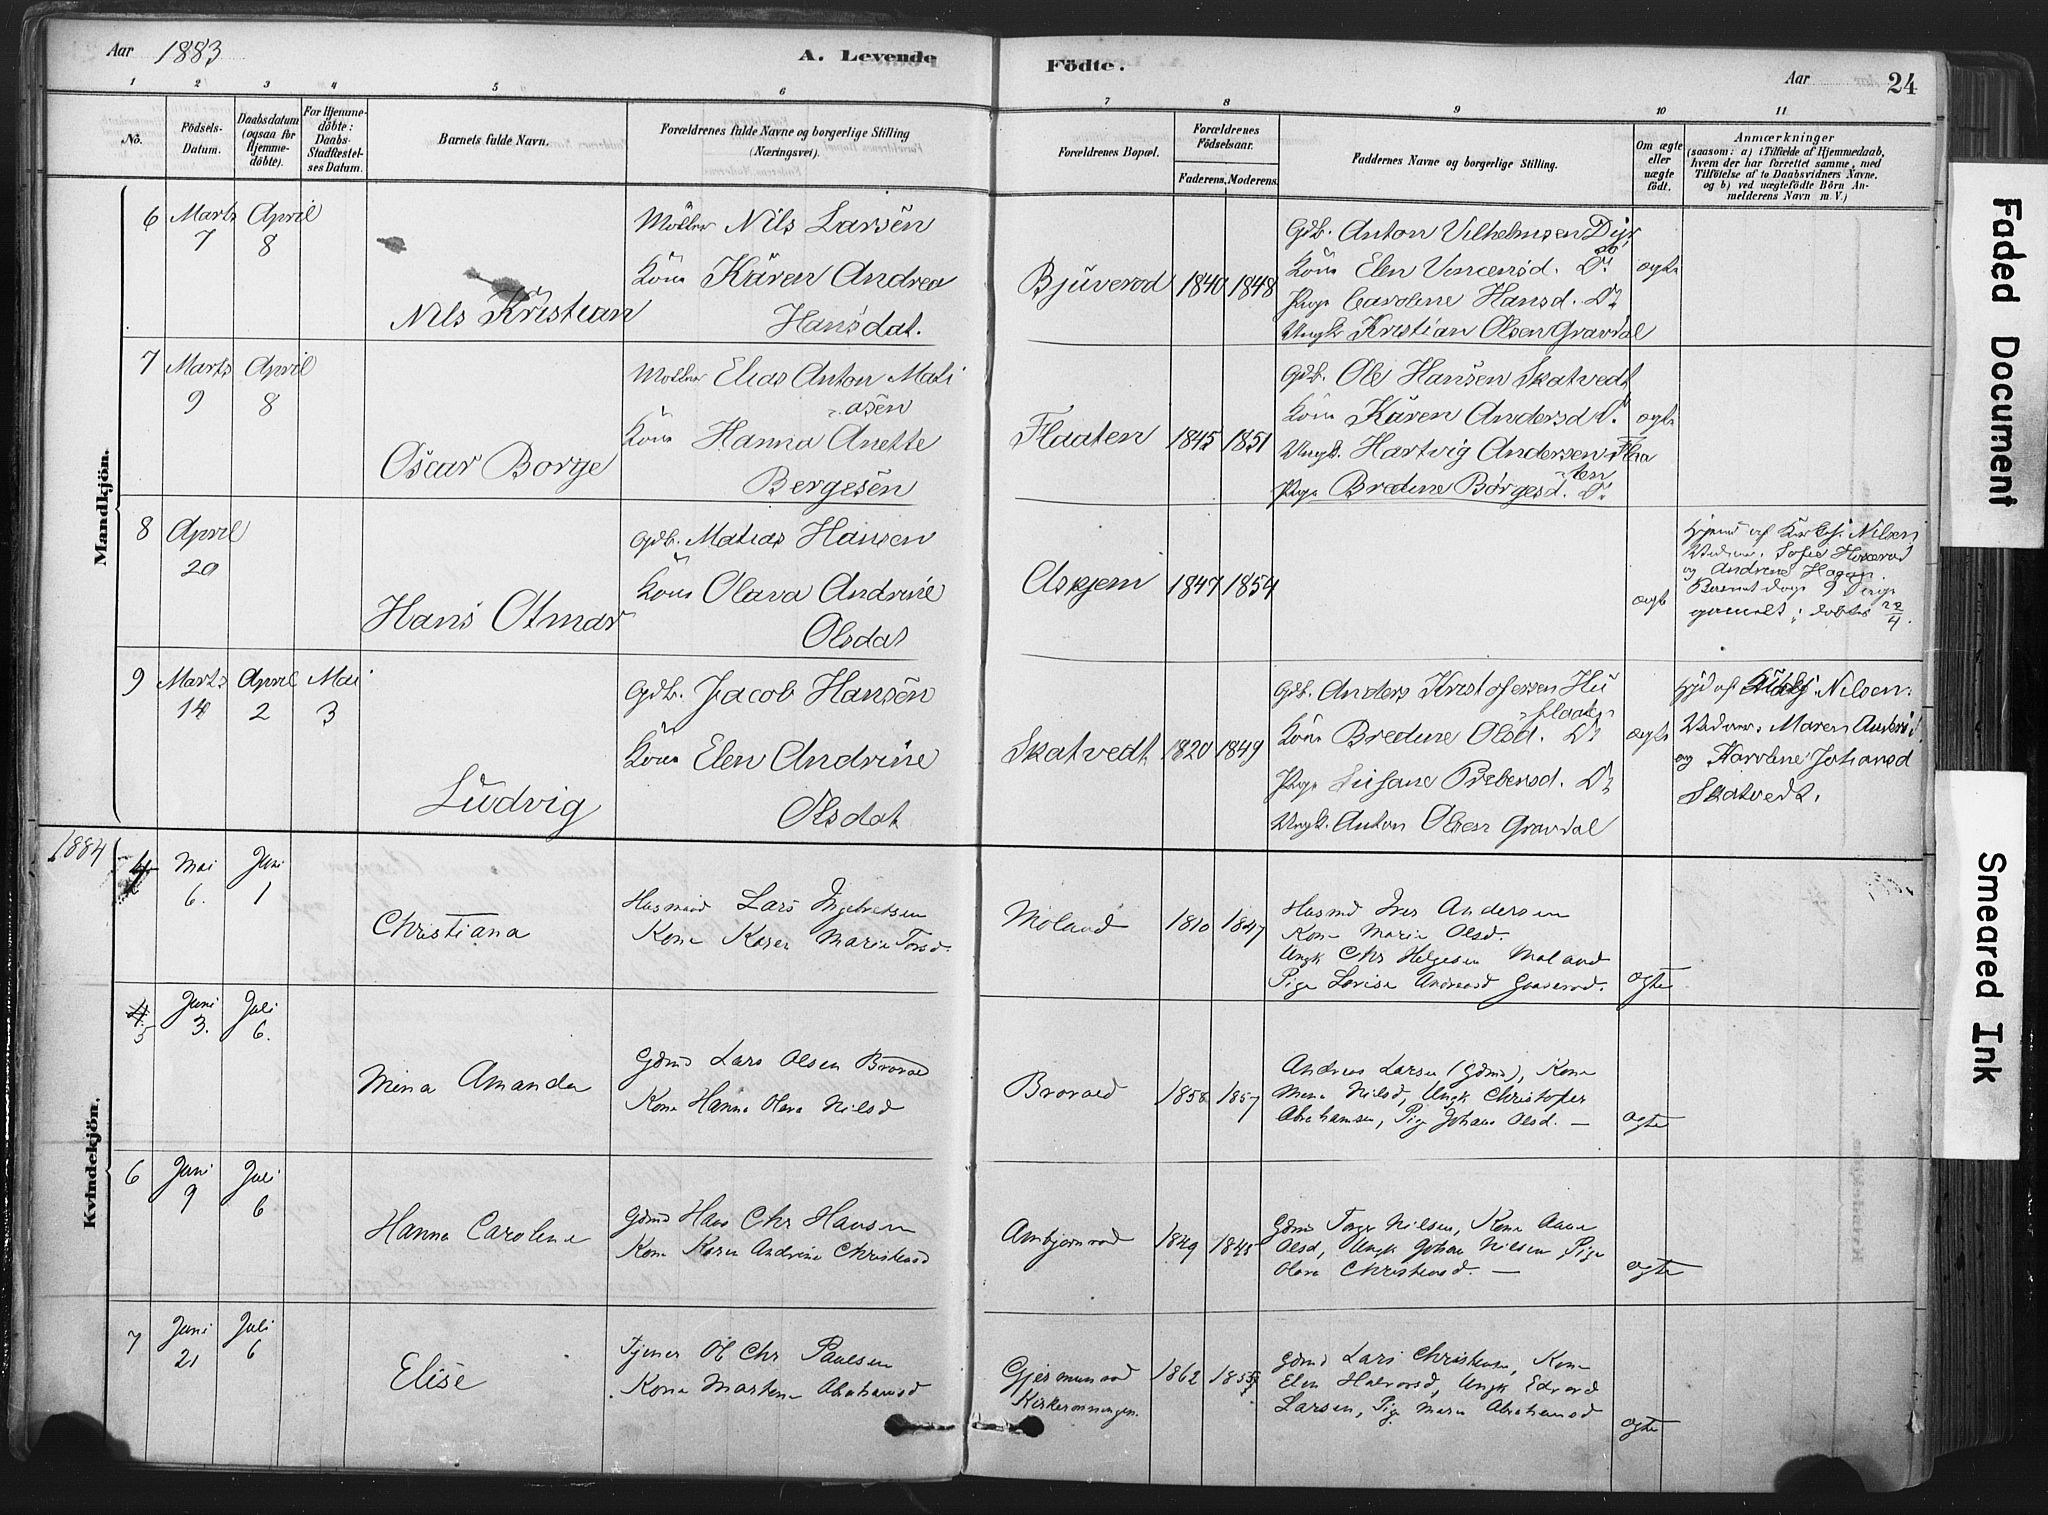 Aar 1883
A. Levende
Födte.
Aar
24
1 2 3 4 5 6 7 8 9 10 11
No.
Födsels-
Datum.
Daabsdatum
(ogsaa for
Hjemme-
döbte).
For Hjemme-
döbte:
Daabs-
Stadfæstel-
ses Datum.
Barnets fulde Navn.
Forældrenes fulde Navne og borgerlige Stilling
(Næringsvei).
Forældrenes Bopæl.
Forældrenes
Födselsaar.
Faderens. Moderens.
Faddernes Navne og borgerlige Stilling.
Om ægte
eller
uægte
födt.
Anmærkninger
(saasom: a) i Tilfælde af Hjemmedaab,
hvem der har forrettet samme, med
Tilföielse af to Daabsvidners Navne,
og b) ved uægtefödte Börn An-
melderens Navn m. V.)
Mandkjön.
6 Marts 7 April 8
Nils Kristian
Möller Nils Larsen
Kone Karen Andrea
Hansdat.
Bjuverod 1840 1848
Gdb. Anton Vilhelmsen
Kone Elen
Pige Caroline Hansd. Do
Ungk. Kristian Olsen Gravdal
ægte
7 Marts 9 April 8
Oscar Borge
Möller Elias Anton Mati
asen
Kone Hanna Anette
Bergesen
Flaaten 1845 1851
Gdb. Ole Hansen Skatvedt
Kone Karen Andersd Do.
Ungk. Hartvig Andersen Flaa
ten
Pige Bredine Börgesd. Do.
ægte
8 April 20
Hans Otmar
Gdb. Matias Hansen
Kone Olava Andrine
Olsdat
Askjem 1847 1854
ægte
Nilsen
Sofie
og Andrine Hagen.
gammelt; döbtes 22/4.
9 Marts 14 April 2 Mai 3
Ludvig
Gdb. Jacob Hansen
Kone Elen Andrine
Olsdat
Skatvedt 1820 1849
Gdb. Anders Kristofersen Hu
flaaten
Kone Bredine Olsd. Do
Pige Susane Prebensd. Do
Ungk. Anton Olsen Gravdal
ægte
Hjd af Nilsen.
Vidner: Maren Andersd.
og Karoline Johansd
Skatvedt.
1884
Kvindekjön.
4 Mai 6. Juni 1
Christiana
Husmand Lars Ingebretsen
Kone Karen Marie Torsd.
Moland 1810 1847
Husmd Iver Andersen
Kone Marie Olsd.
Ungk Chr Helgesen Moland
Pige Lovise Andreasd Gaaserod.
ægte
4 5 Juni 3. Juli 6.
Mina Amanda
Gdmd Lars Olsen Brovold
Kone Hanna Olava Nilsd
1858 1857
Andreas Larsen (Gdmd), Kone
Mina Nilsd, Ungk Christofer
Abrahamsen, Pige Johane Olsd. —
ægte
6 Juni 9 Juli 6
Hanna Caroline
Gdmd Hans Chr Hansen
Kone Karen Andrine Christensd
Ambjørnrod 1849 1845
Gdmd Torger Nilsen, Kone Anne
Olsd, Ungk Johan Nilsen Pige
Olava Christensd. —
ægte
7 Juni 21 Juli 6
Elise
Tjener Ol Chr Paulsen
Kone Martine Abrahamsd
Gjermunrod
Kirkerønningen.
1862
Gdmd Lars Christensen, Kone
Elen Halvorsd, Ungk Edvard
Larsen, Pige Maren Abrahamsd
ægte
Faded Document
Smeared Ink